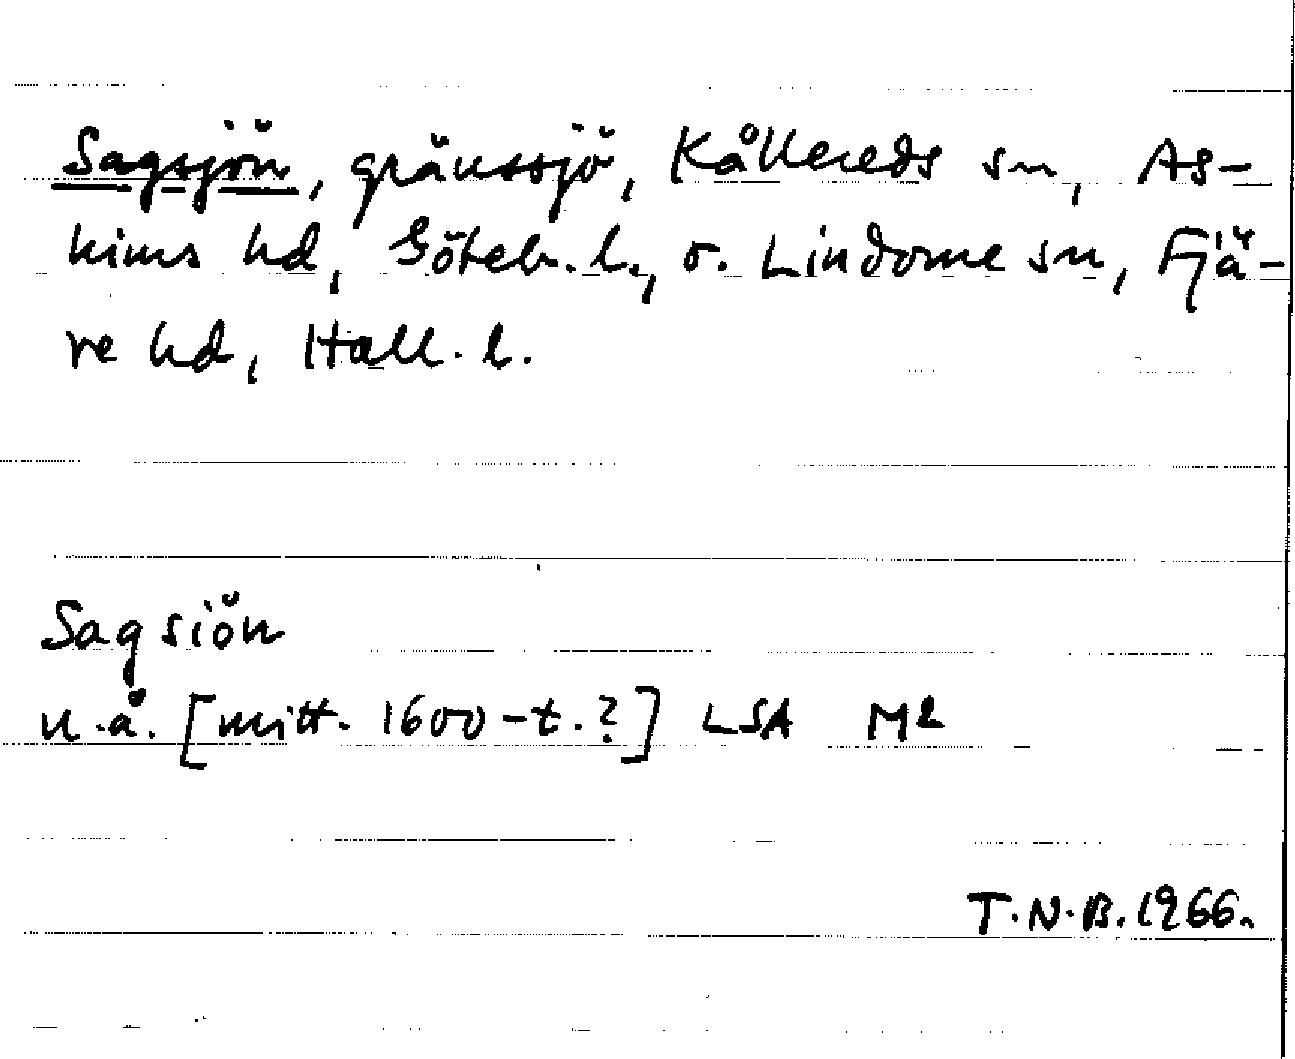 Sagsjön, gränssjö, Kållereds sn, As-
kims hd, Göteb. l., o. Lindome sn, Fjä-
re hd, Hall. l.
Sag siön
u.å. [mitt. 1600-t.?] LSA M2
T.N.B. 1966.